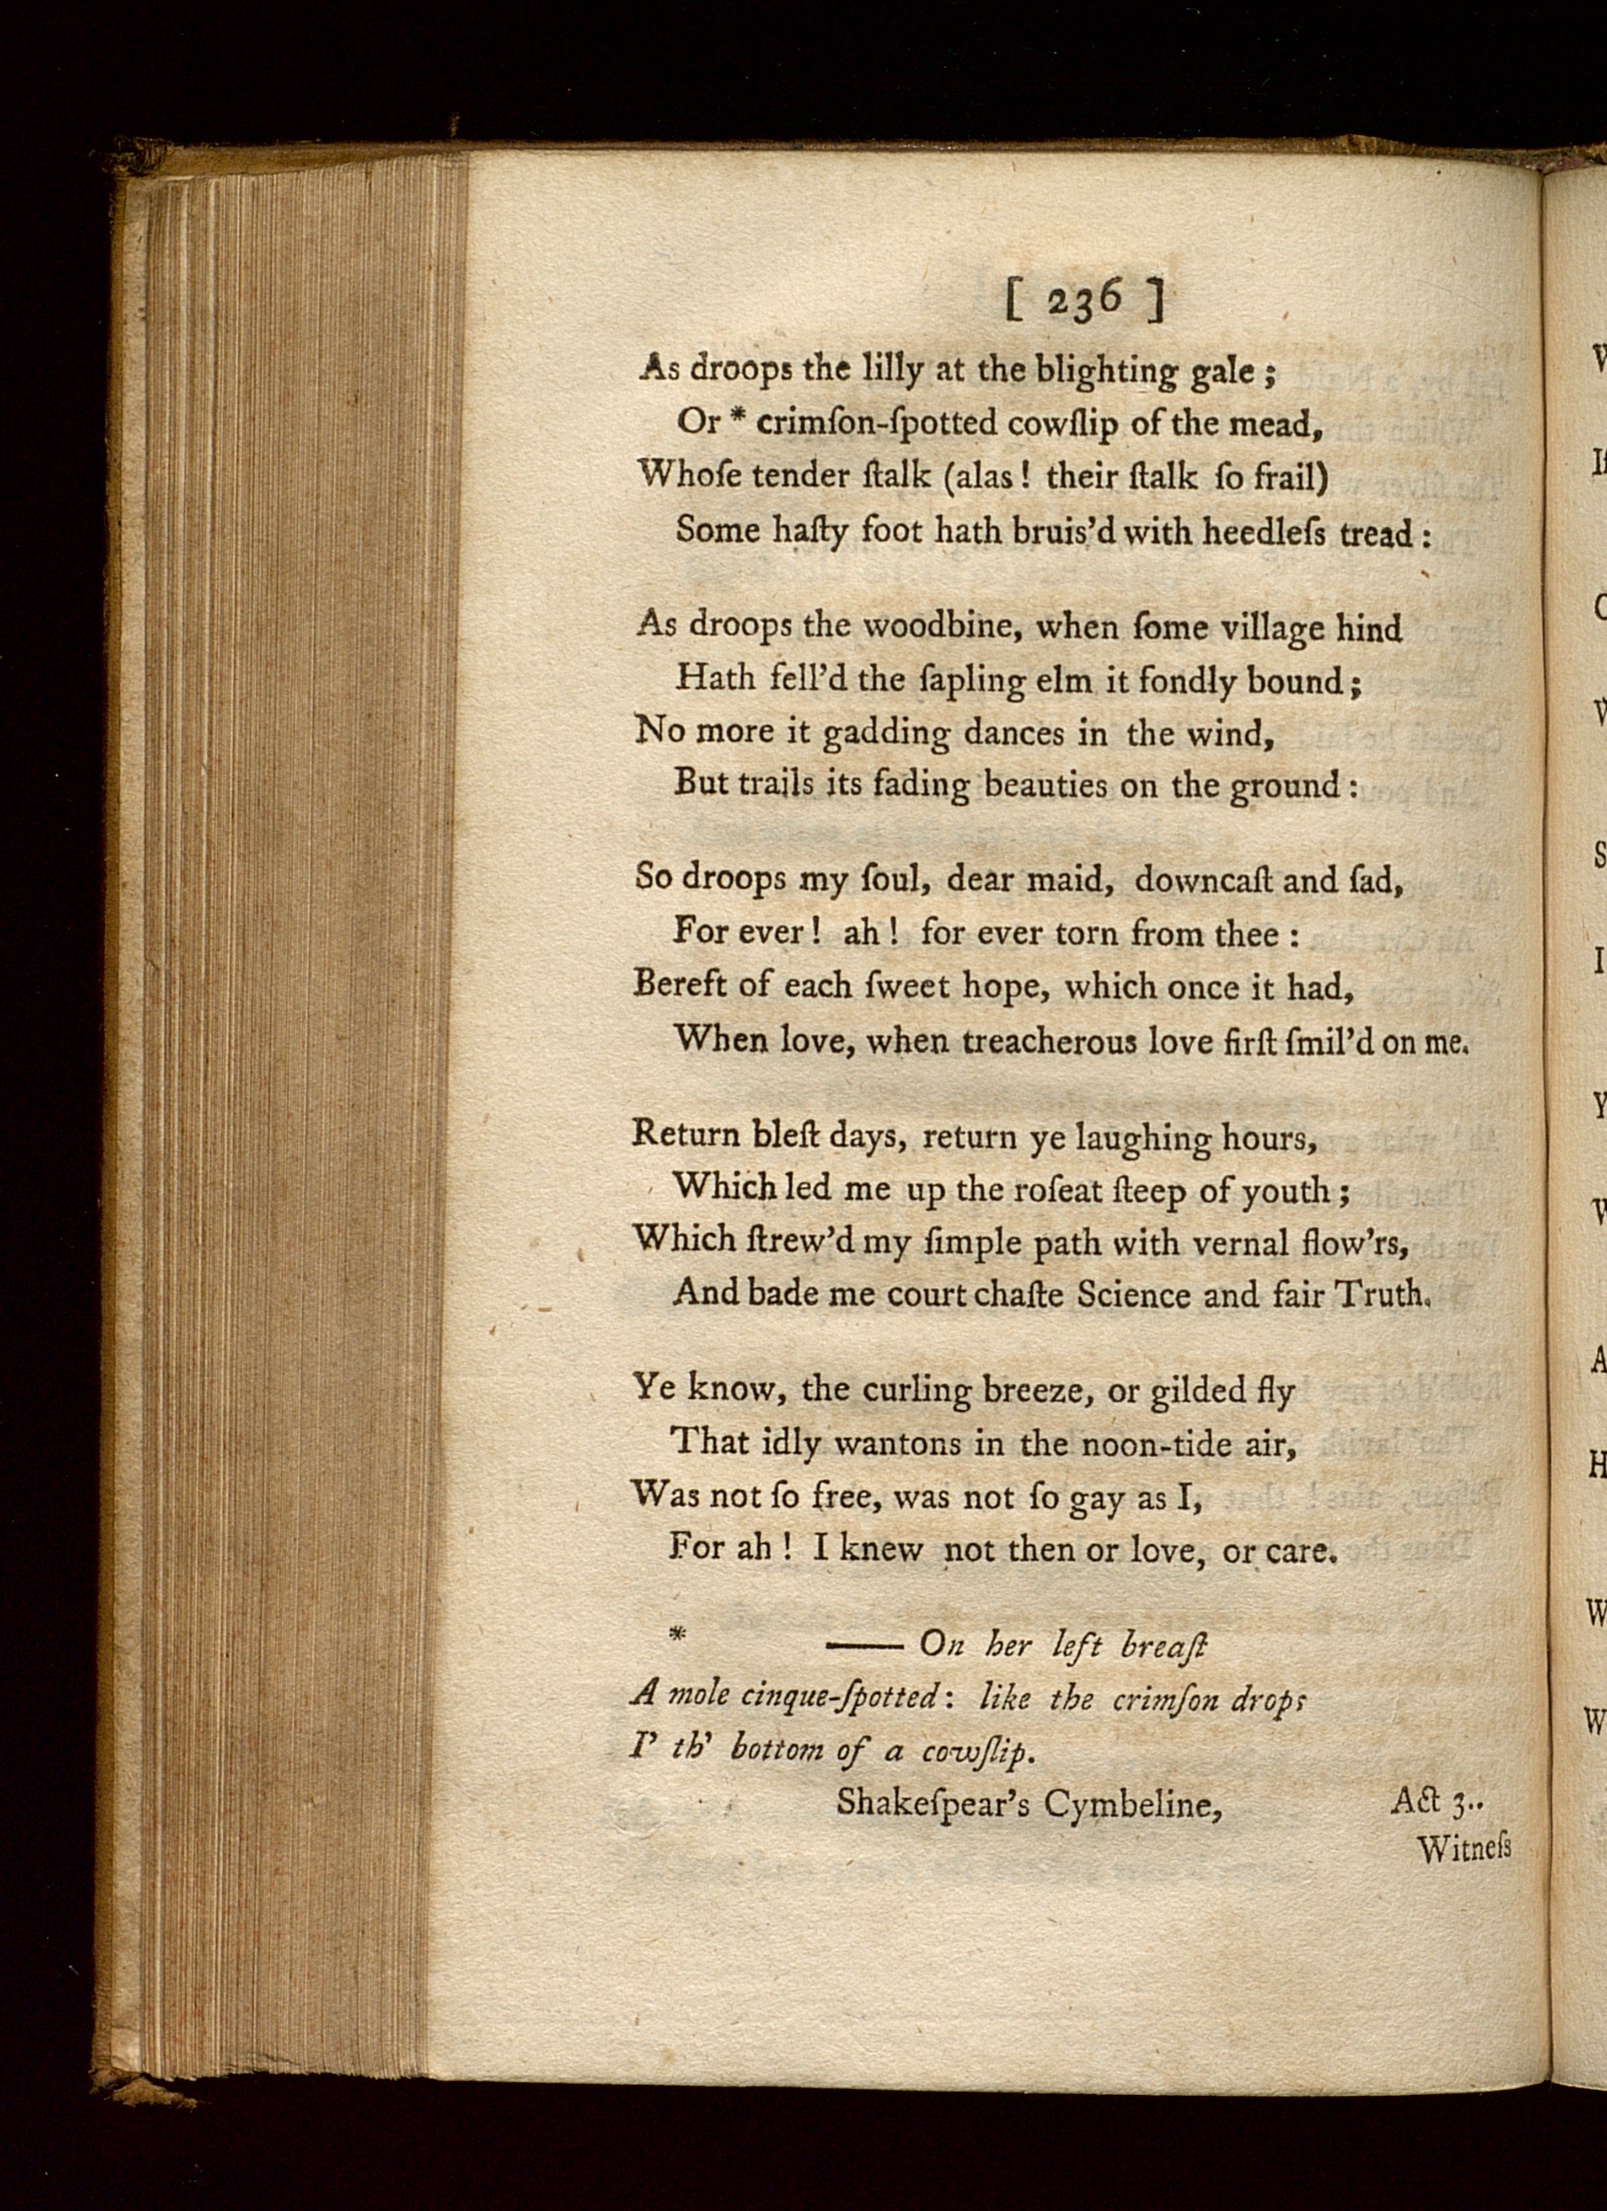 [ 236 ]
As droops the lilly at the blighting gale ;
Or * crimſon-ſpotted cowſlip of the mead,
Whoſe tender ſtalk (alas ! their ſtalk ſo frail)
Some haſty foot hath bruis'd with heedleſs tread :
As droops the woodbine, when ſome village hind
Hath fell'd the ſapling elm it fondly bound ;
No more it gadding dances in the wind,
But trails its fading beauties on the ground :
So droops my ſoul, dear maid, downcaſt and ſad,
For ever ! ah ! for ever torn from thee :
Bereft of each ſweet hope, which once it had,
When love, when treacherous love firſt ſmil'd on me.
Return bleſt days, return ye laughing hours,
Which led me up the roſeat ſteep of youth ;
Which ſtrew'd my ſimple path with vernal flow'rs,
And bade me court chaſte Science and fair Truth.
Ye know, the curling breeze, or gilded fly
That idly wantons in the noon-tide air,
Was not ſo free, was not ſo gay as I,
For ah ! I knew not then or love, or care.
* —— On her left breaſt
A mole cinque-ſpotted : like the crimſon drops
I' th' bottom of a cowſlip.
Shakeſpear's Cymbeline, Act 3..
Witneſs